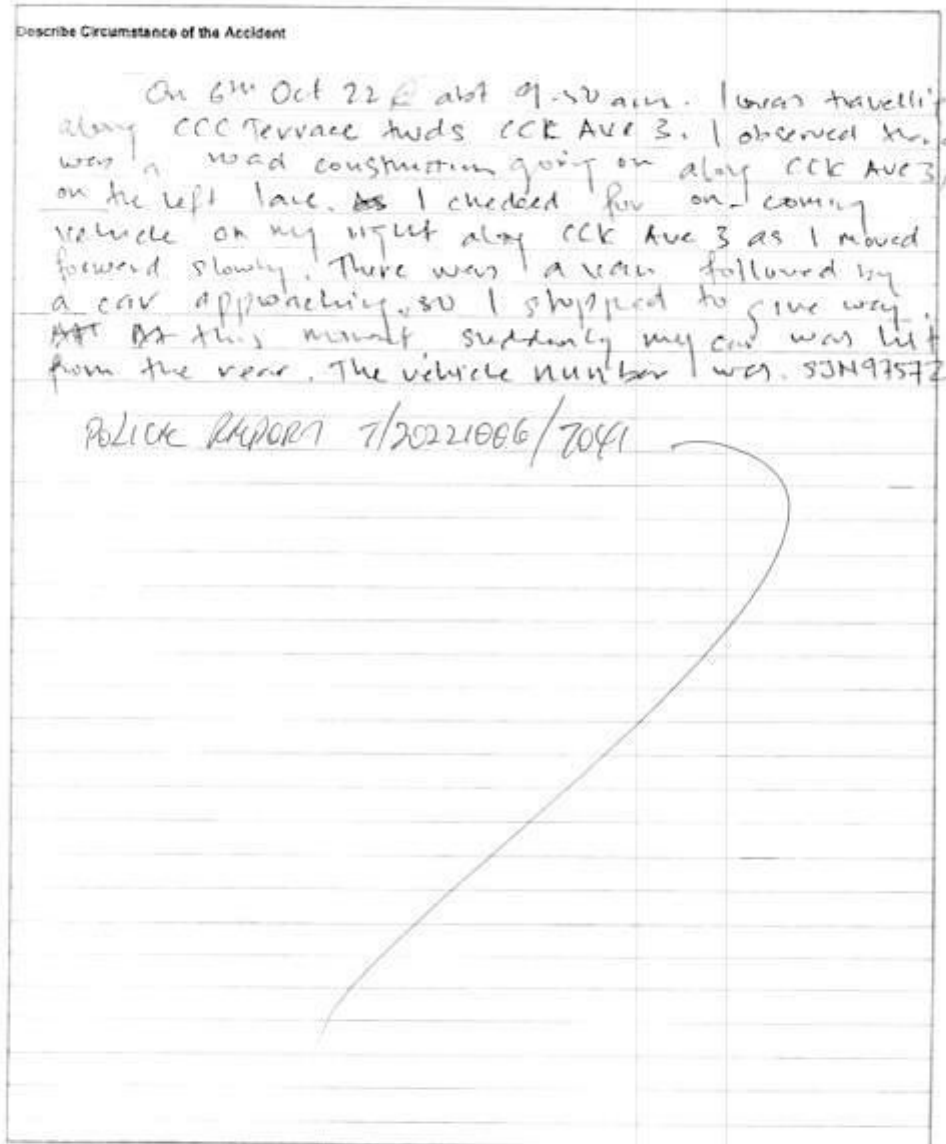 Describe Circumstance of the Accident
On 6th Oct 22 @ abt 9.50 am. I was travelli
along CCC Terrace twds CCK Ave 3. I observed
was a road construction going on along CCK Ave 3,
on the left lane. As I checked for on-coming
vehicle on my right along CCK Ave 3 as I moved
forward slowly. There was a van followed by
a car approaching, so I stopped to give way.
At this moment, suddenly my car was hit
from the rear. The vehicle number was. SJN9757Z
POLICE REPORT T/20221006/7041